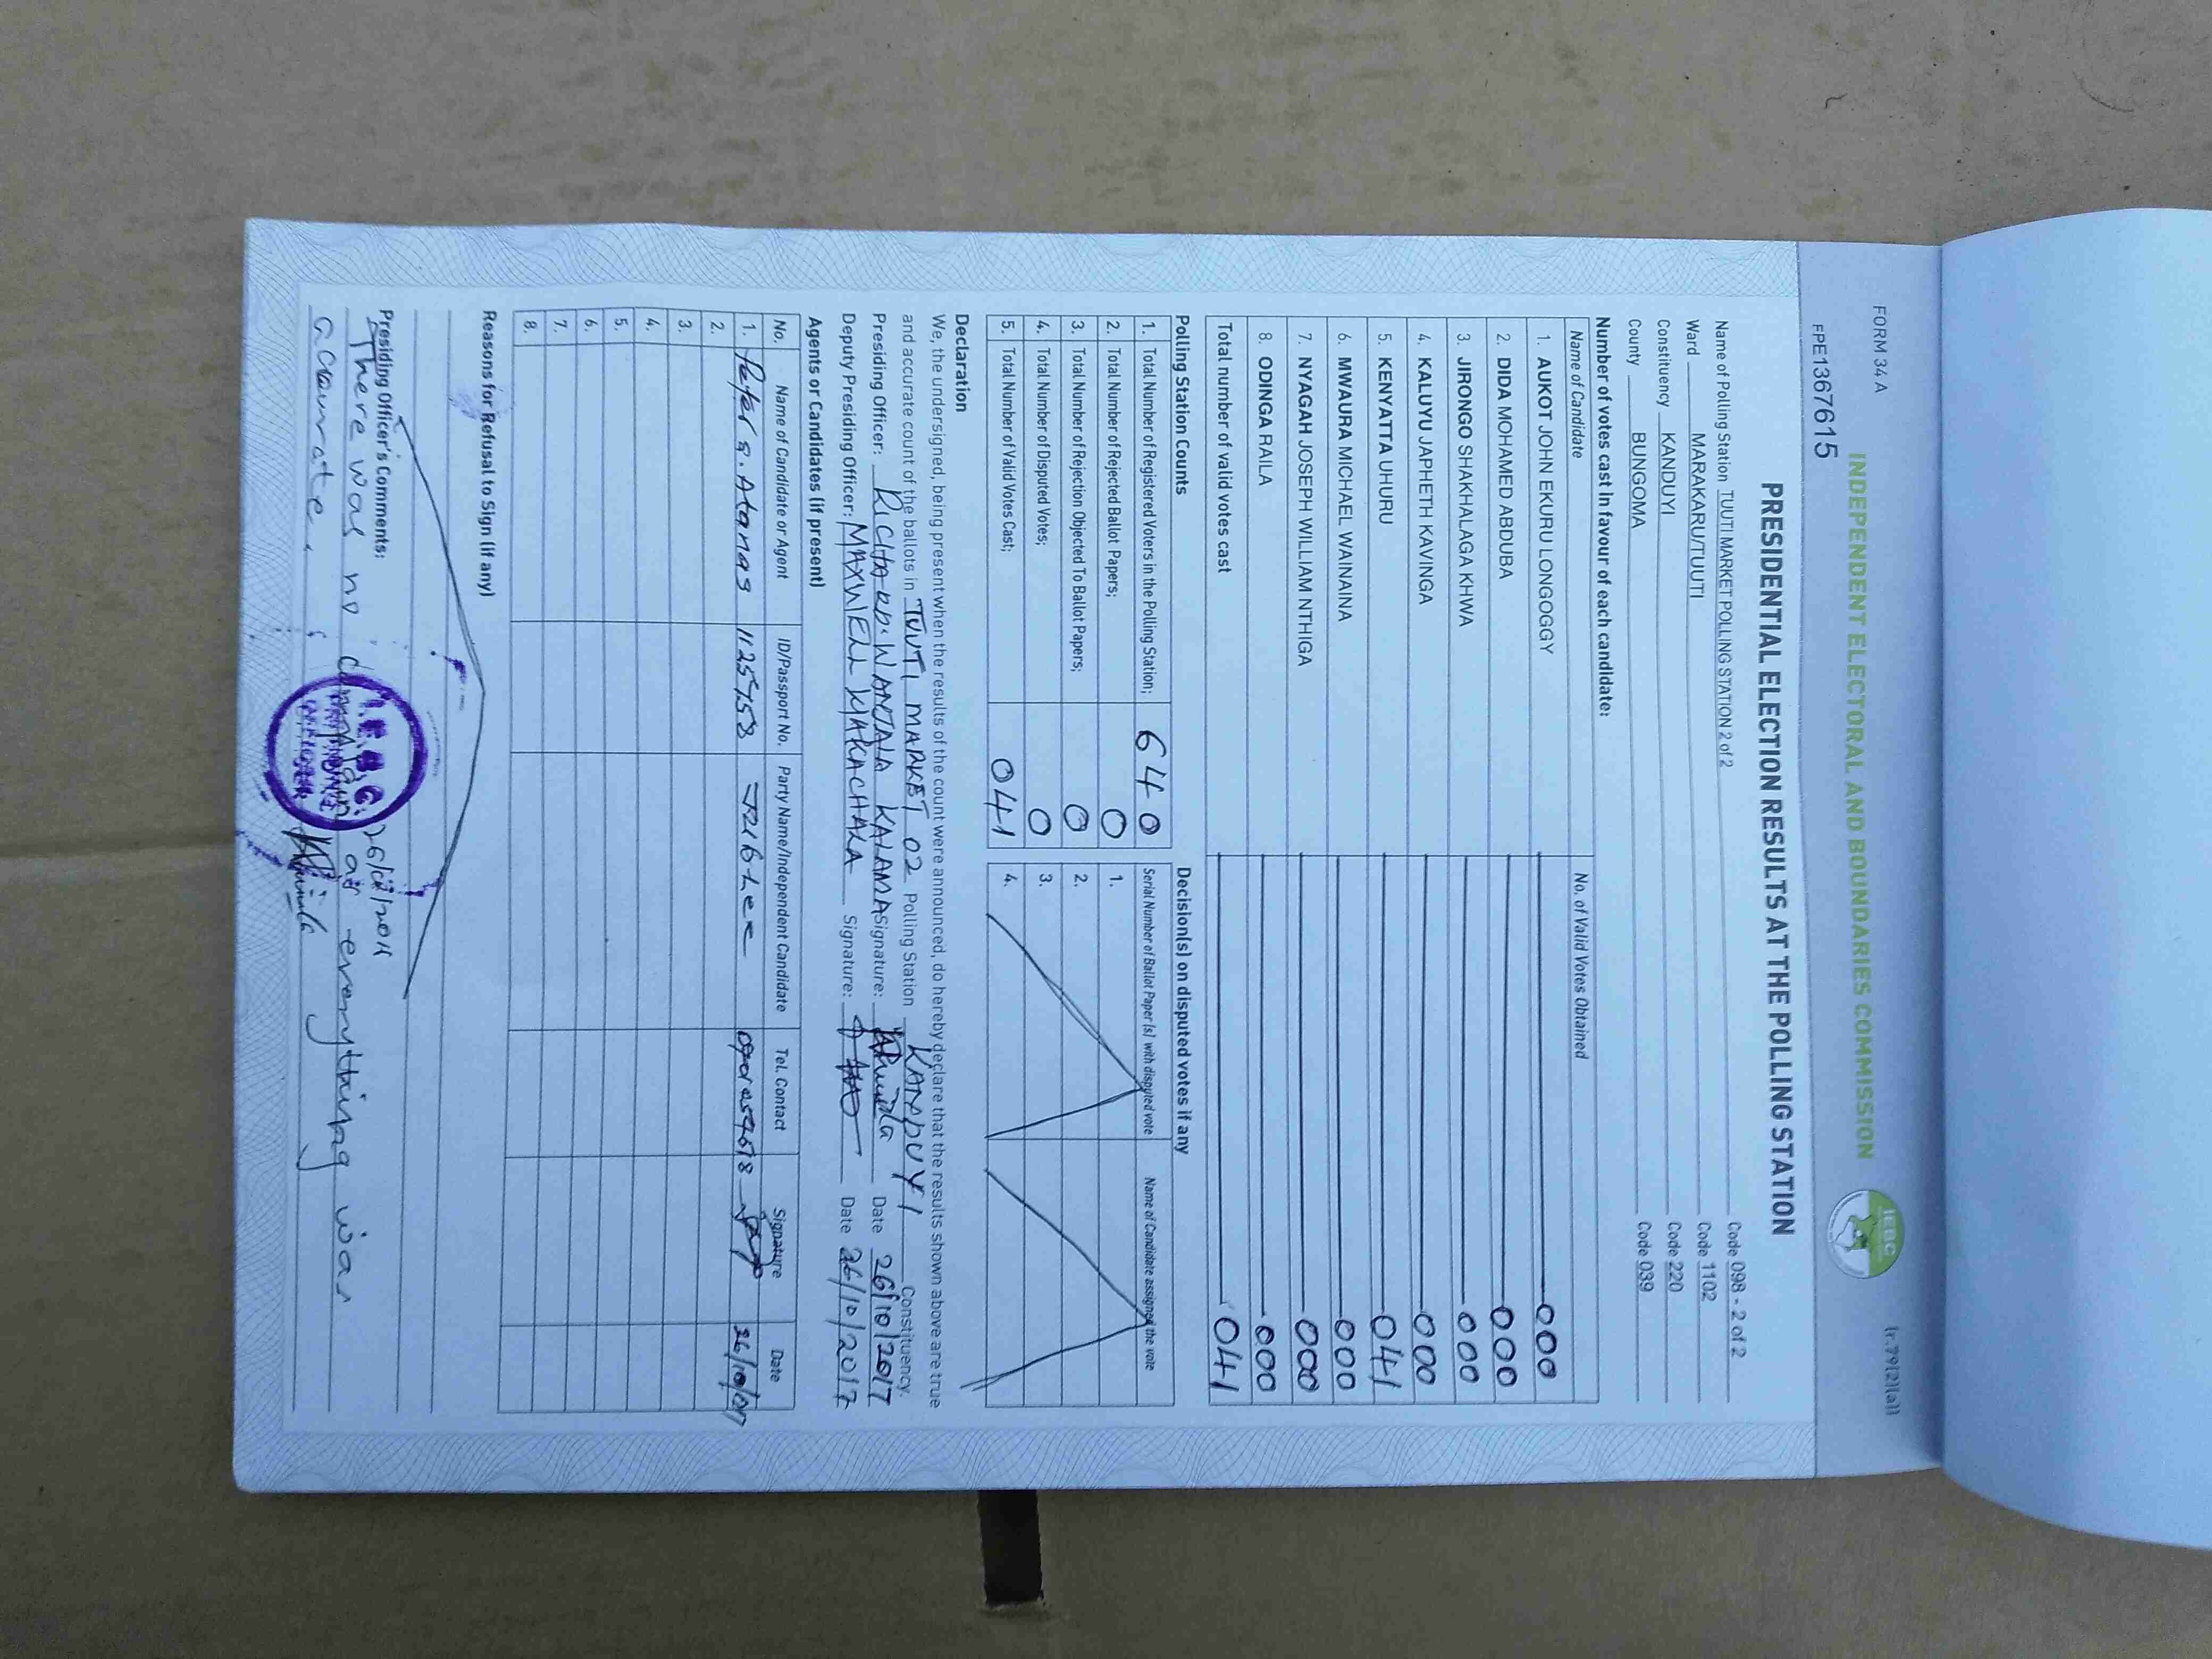 FORM 34 A
(r.79(2)(a))
INDEPENDENT ELECTORAL AND BOUNDARIES COMMISSION
IEBC
FPE1367615
PRESIDENTIAL ELECTION RESULTS AT THE POLLING STATION
Name of Polling Station TUUTI MARKET POLLING STATION 2 of 2 Code 098 - 2 of 2
Ward MARAKARU/TUUTI Code 1102
Constituency KANDUYI Code 220
County BUNGOMA Code 039
Number of votes cast in favour of each candidate:
Name of Candidate No. of Valid Votes Obtained
1. AUKOT JOHN EKURU LONGOGGY 000
2. DIDA MOHAMED ABDUBA 000
3. JIRONGO SHAKHALAGA KHWA 000
4. KALUYU JAPHETH KAVINGA 000
5. KENYATTA UHURU 041
6. MWAURA MICHAEL WAINAINA 000
7. NYAGAH JOSEPH WILLIAM NTHIGA 000
8. ODINGA RAILA 000
Total number of valid votes cast 041
Polling Station Counts Decision(s) on disputed votes if any
1. Total Number of Registered Voters in the Polling Station; 640 Serial Number of Ballot Paper (s) with disputed vote Name of Candidate assigned the vote
2. Total Number of Rejected Ballot Papers; 0 1.
3. Total Number of Rejection Objected To Ballot Papers; 0 2.
4. Total Number of Disputed Votes; 0 3.
5. Total Number of Valid Votes Cast; 041 4.
Declaration
We, the undersigned, being present when the results of the count were announced, do hereby declare that the results shown above are true
and accurate count of the ballots in TUUTI MARKET 02 Polling Station KANDUYI Constituency.
Presiding Officer: RICHARD WANJALA KALAMA Signature: Date 26/10/2017
Deputy Presiding Officer: MAXWELL WAKACHAKA Signature: Date 26/10/2017
Agents or Candidates (if present)
No. Name of Candidate or Agent ID/Passport No. Party Name/Independent Candidate Tel. Contact Signature Date
1. Peter 26/10/017
2.
3.
4.
5.
6.
7.
8.
Reasons for Refusal to Sign (if any)
Presiding Officer's Comments:
There was no complain as everything was
accurate.
I.E.B.C.